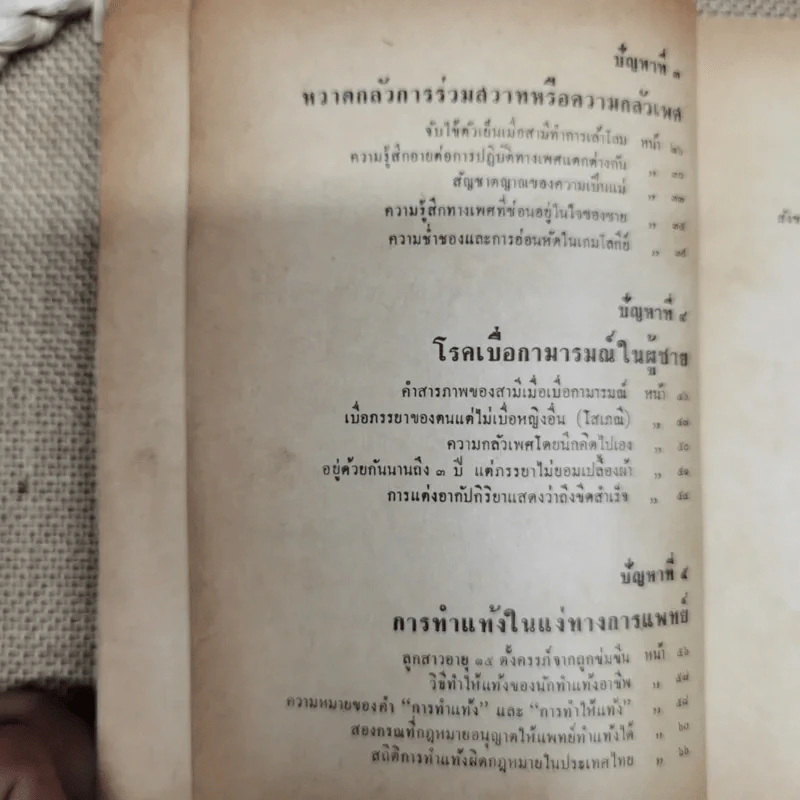 ปัญหาที่ ๓
หวาดกลัวการร่วมสวาทหรือความกลัวเพศ
จับไข้ตัวเย็นเมื่อสามีทำการเล้าโลม หน้า ๒๖
ความรู้สึกอายต่อการปฏิบัติทางเพศแตกต่างกัน ,,
สัญชาตญาณของความเป็นแม่ ,, ๓๓
ความรู้สึกทางเพศที่ซ่อนอยู่ในใจของชาย ,, ๓๕
ความช่ำชองและการอ่อนหัดในเกมโลกีย์ ,,
ปัญหาที่ ๔
โรคเบื่อกามารมณ์ในผู้ชาย
คำสารภาพของสามีเมื่อเบื่อกามารมณ์ หน้า ๔๖
เบื่อภรรยาของตนแต่ไม่เบื่อหญิงอื่น (โสเภณี) ,,
ความกลัวเพศโดยนึกคิดไปเอง ,, ๕๐
อยู่ด้วยกันนานถึง ๓ ปี แต่ภรรยาไม่ยอมเปลื้องผ้า ,, ๕๑
การแต่งอากัปกิริยาแสดงว่าถึงขีดสำเร็จ ,,
ปัญหาที่ ๕
การทำแท้งในแง่ทางการแพทย์
ลูกสาวอายุ ๑๕ ตั้งครรภ์จากถูกข่มขืน หน้า ๕๖
วิธีทำให้แท้งของนักทำแท้งอาชีพ ,, ๕๘
ความหมายของคำ “การทำแท้ง” และ “การทำให้แท้ง” ,, ๕๘
สองกรณีที่กฎหมายอนุญาตให้แพทย์ทำแท้งได้ ,, ๖๐
สถิติการทำแท้งผิดกฎหมายในประเทศไทย ,,